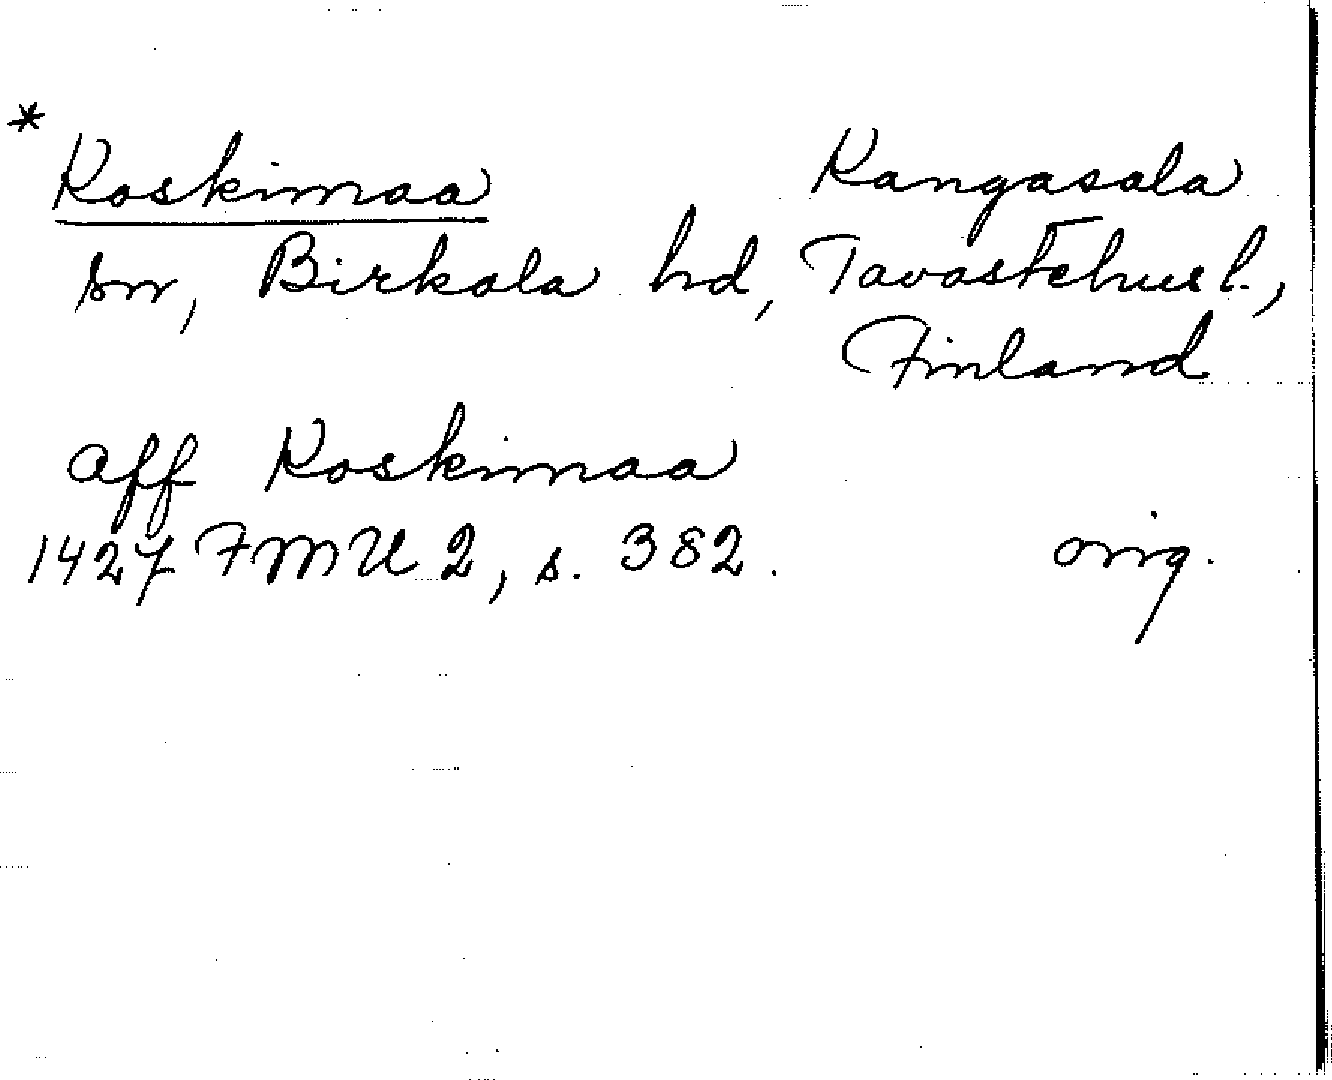 * Koskimaa Kangasala
sn, Birkala hd, Tavastehus l.,
Finland
aff Koskimaa
1427 FMU 2, s. 382. orig.